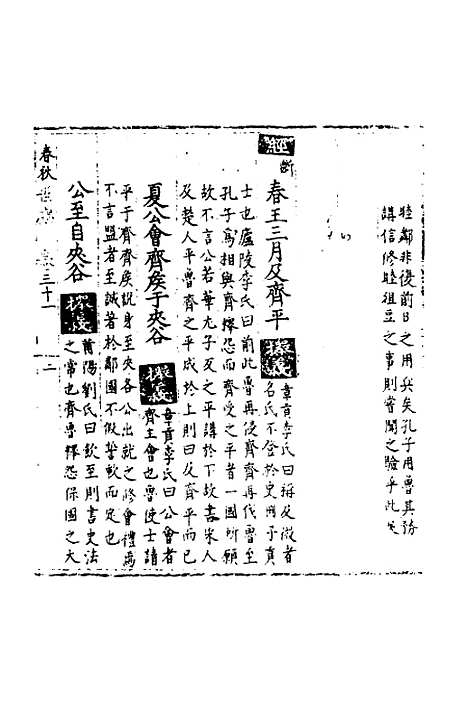 睦鄰非復前日之用兵矣孔子用魯其務
講信修睦俎豆之事則嘗聞之驗乎此矣
經
斷
春王三月及齊平
擬義
章貢李氏曰稱及微者
名氏不登於史冊予貢
士也廬陵李氏曰前此魯再侵齊齊再伐魯至
孔子為相與齊釋怨而齊受之平者一國所願
故不言公若華元子反之平講於下故書宋人
及楚人平魯齊之平成於上則曰及齊平而已
夏公會齊侯于夾谷
擬義
章貢李氏曰公會者
齊主會也魯使士請
平于齊齊侯説身至夾谷公出就之修會禮焉
不言盟者至誠著於鄰國不假誓軟而定也
公至自夾谷
擬義
莆陽劉氏曰飲至則書史法
之常也齊魯釋怨保國之大
春秋
卷三十一
二